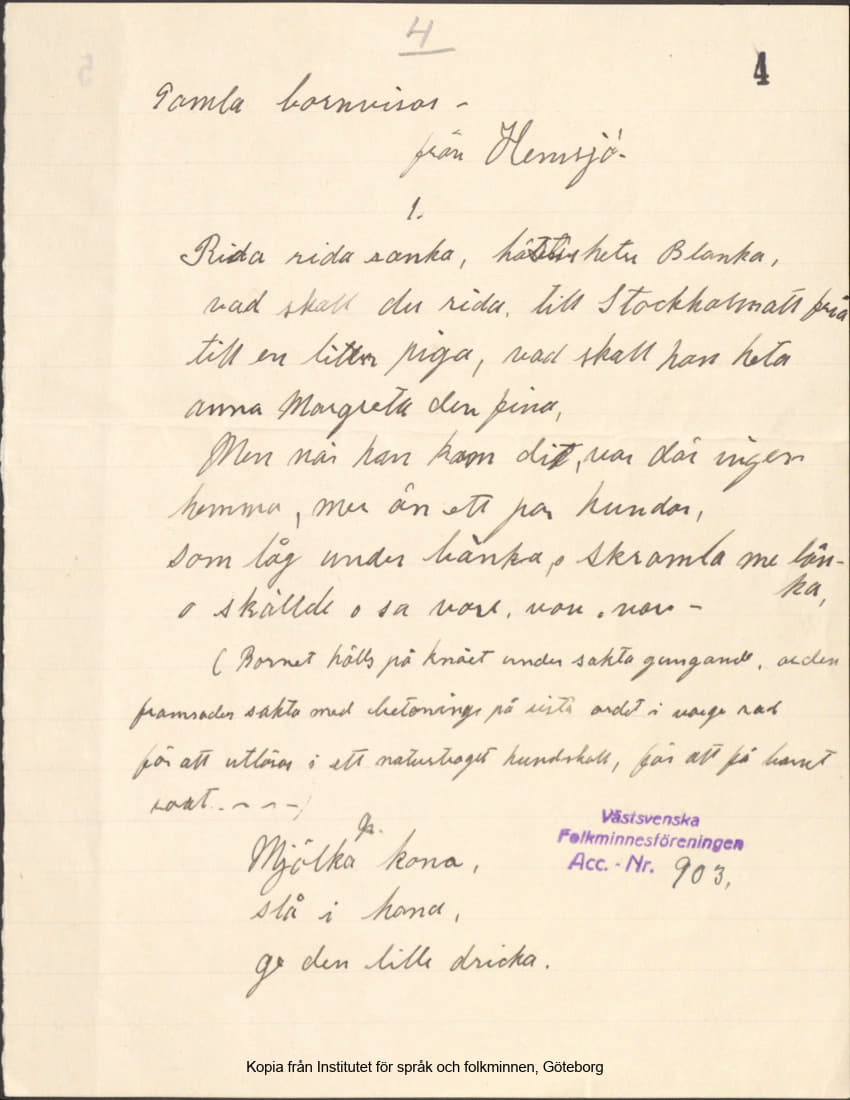 4
4
Gamla barnvisor -
från Hemsjö.
1.
Rida rida ranka, hästen heter Blanka,
vad skall du rida, till Stockholm att fria
till en liten piga, vad skall hon heta
anna Margreta den fina,
Men när han kom dit, var där ingen
hemma, mer än ett par hundar,
som låg under bänka, o skramla me län-
ka,
o skällde o sa vov, vov, vov -
(Barnet hålls på knäet under sakta gungande, orden
framsades sakta med betoning på sista ordet i varje rad
för att utlösas i ett naturtroget hundskall, för att få barnet
2.
Mjölka kona,
slå i kana,
ge den lille dricka.
Västsvenska
Folkminnesföreningen
Acc. - Nr. 903,
Kopia från Institutet för språk och folkminnen, Göteborg